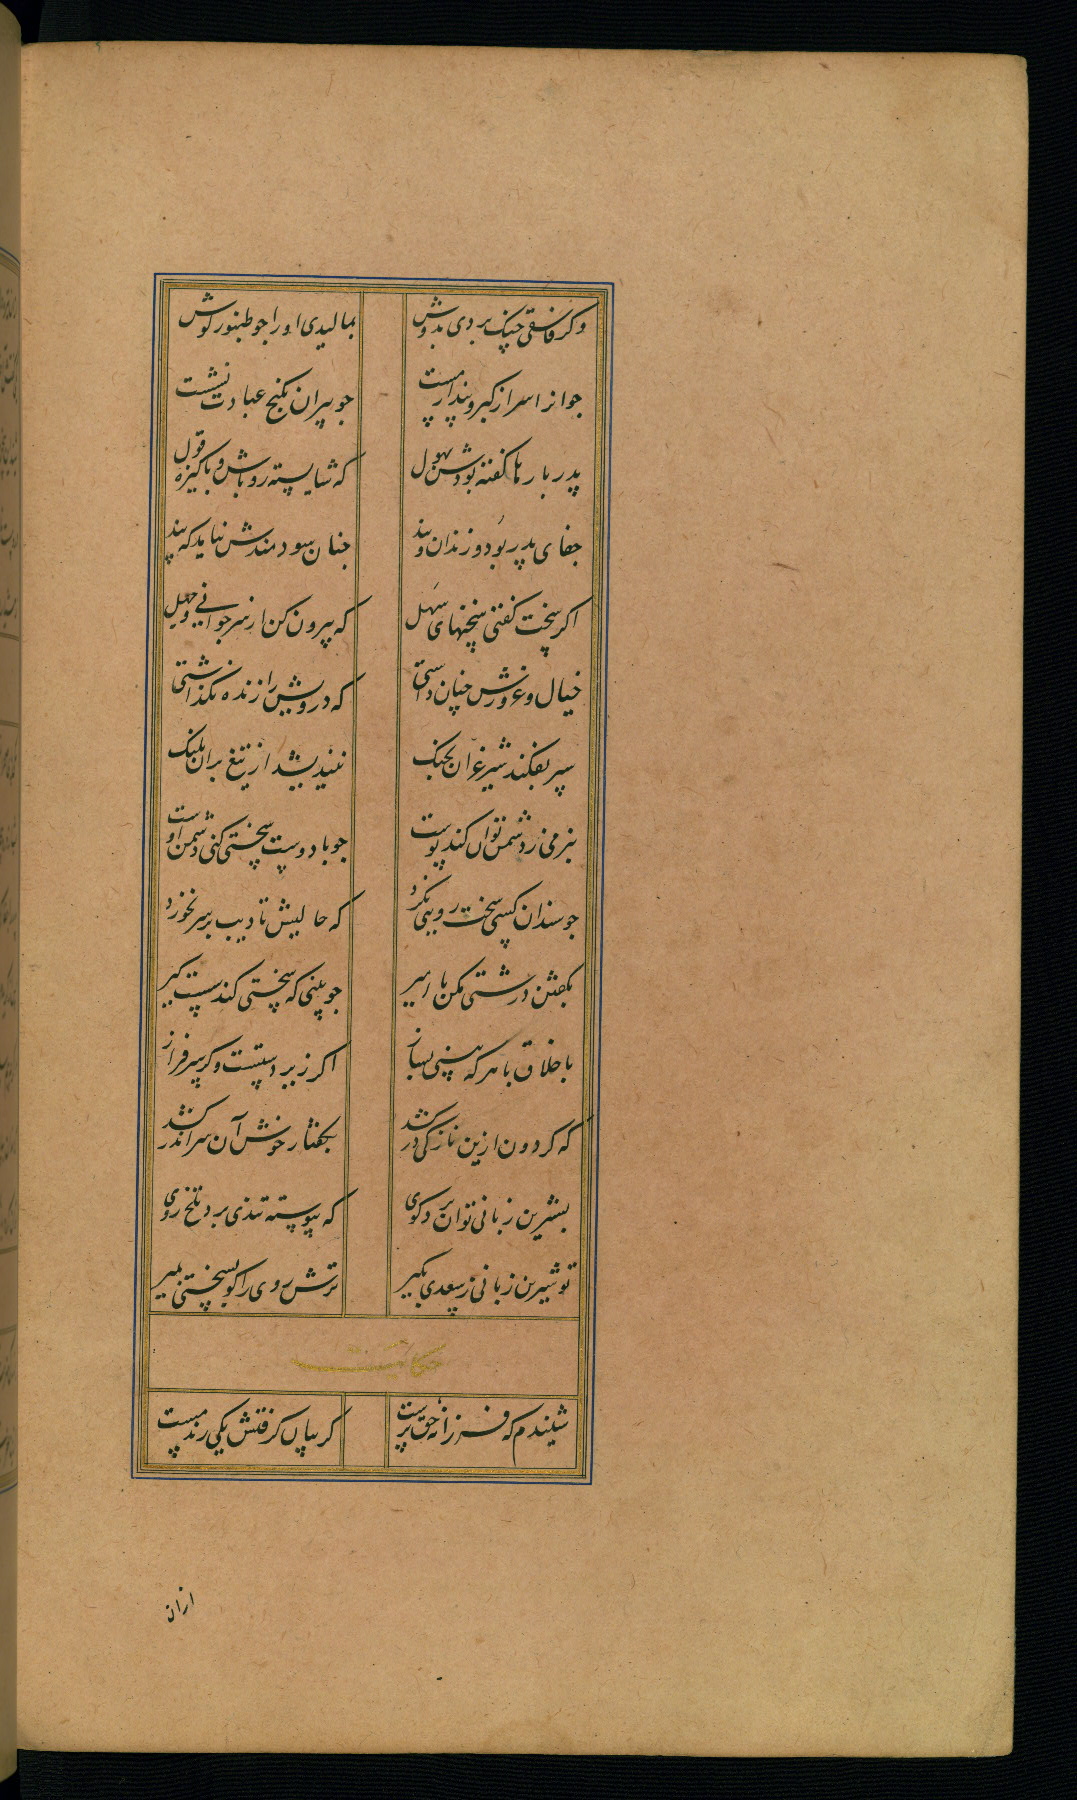 وکر فاسقی چنک بردی بدوش بمالیدی او را جو طنبور کوش
جوان از سر از کبر و پندار مست جو پیران بکنج عبادت نشست
پدر بارها کفته بودش بهول که شایسته رو باش و پاکیزه قول
جفای پدر بود و زندان و بند جنان سودمندش نیاید که پند
اکر سخت کفتی سخنهای سهل که بیرون کن از سر جوانی و جهل
خیال و غرورش چنان داشتی که درویش را زنده نکذاشتی
سپر بفکند شیر غران بجنک نیندیشد از تیغ بران پلنک
بنرمی ز دشمن توان کند پوست جو با دوست سختی کنی دشمن اوست
جو سندان کسی سخت رویی نکرد که خایسک تادیب بر سر نخورد
بکفتن درشتی مکن با امیر جو بینی که سختی کند سست کیر
باخلاق با هر که بینی بساز اکر زیردستست وکر سرفراز
که کردون ازین نازکی در کشد بکفتار خوش آن سر اندر کشد
بشیرین زبانی توان برد کوی که پیوسته تندی برد تلخ روی
تو شیرین زبانی ز سعدی بکیر ترش روی را کو بسختی بمیر
حکایت
شنیدم که فرزانه حق پرست کریبان کرفتش یکی رند مست
ازان